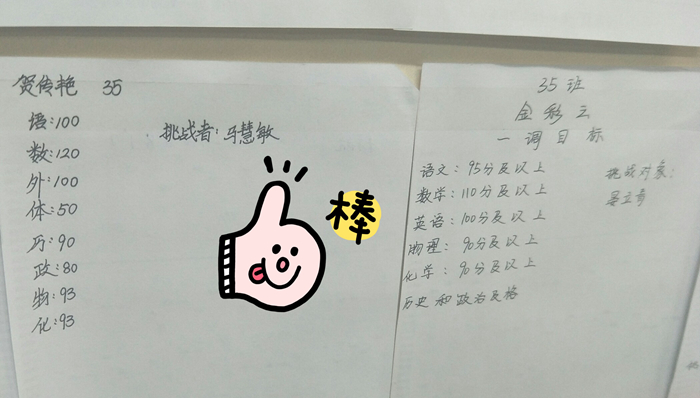 贺传艳 35
语:100
数:120
外:100
体:50
历:90
政:80
物:93
化:93
挑战者:马慧敏
棒
35班
金彩云
一调目标
语文:95分及以上
数学:110分及以上
英语:100分及以上
物理:90分及以上
化学:90分及以上
历史和政治及格
挑战对象: